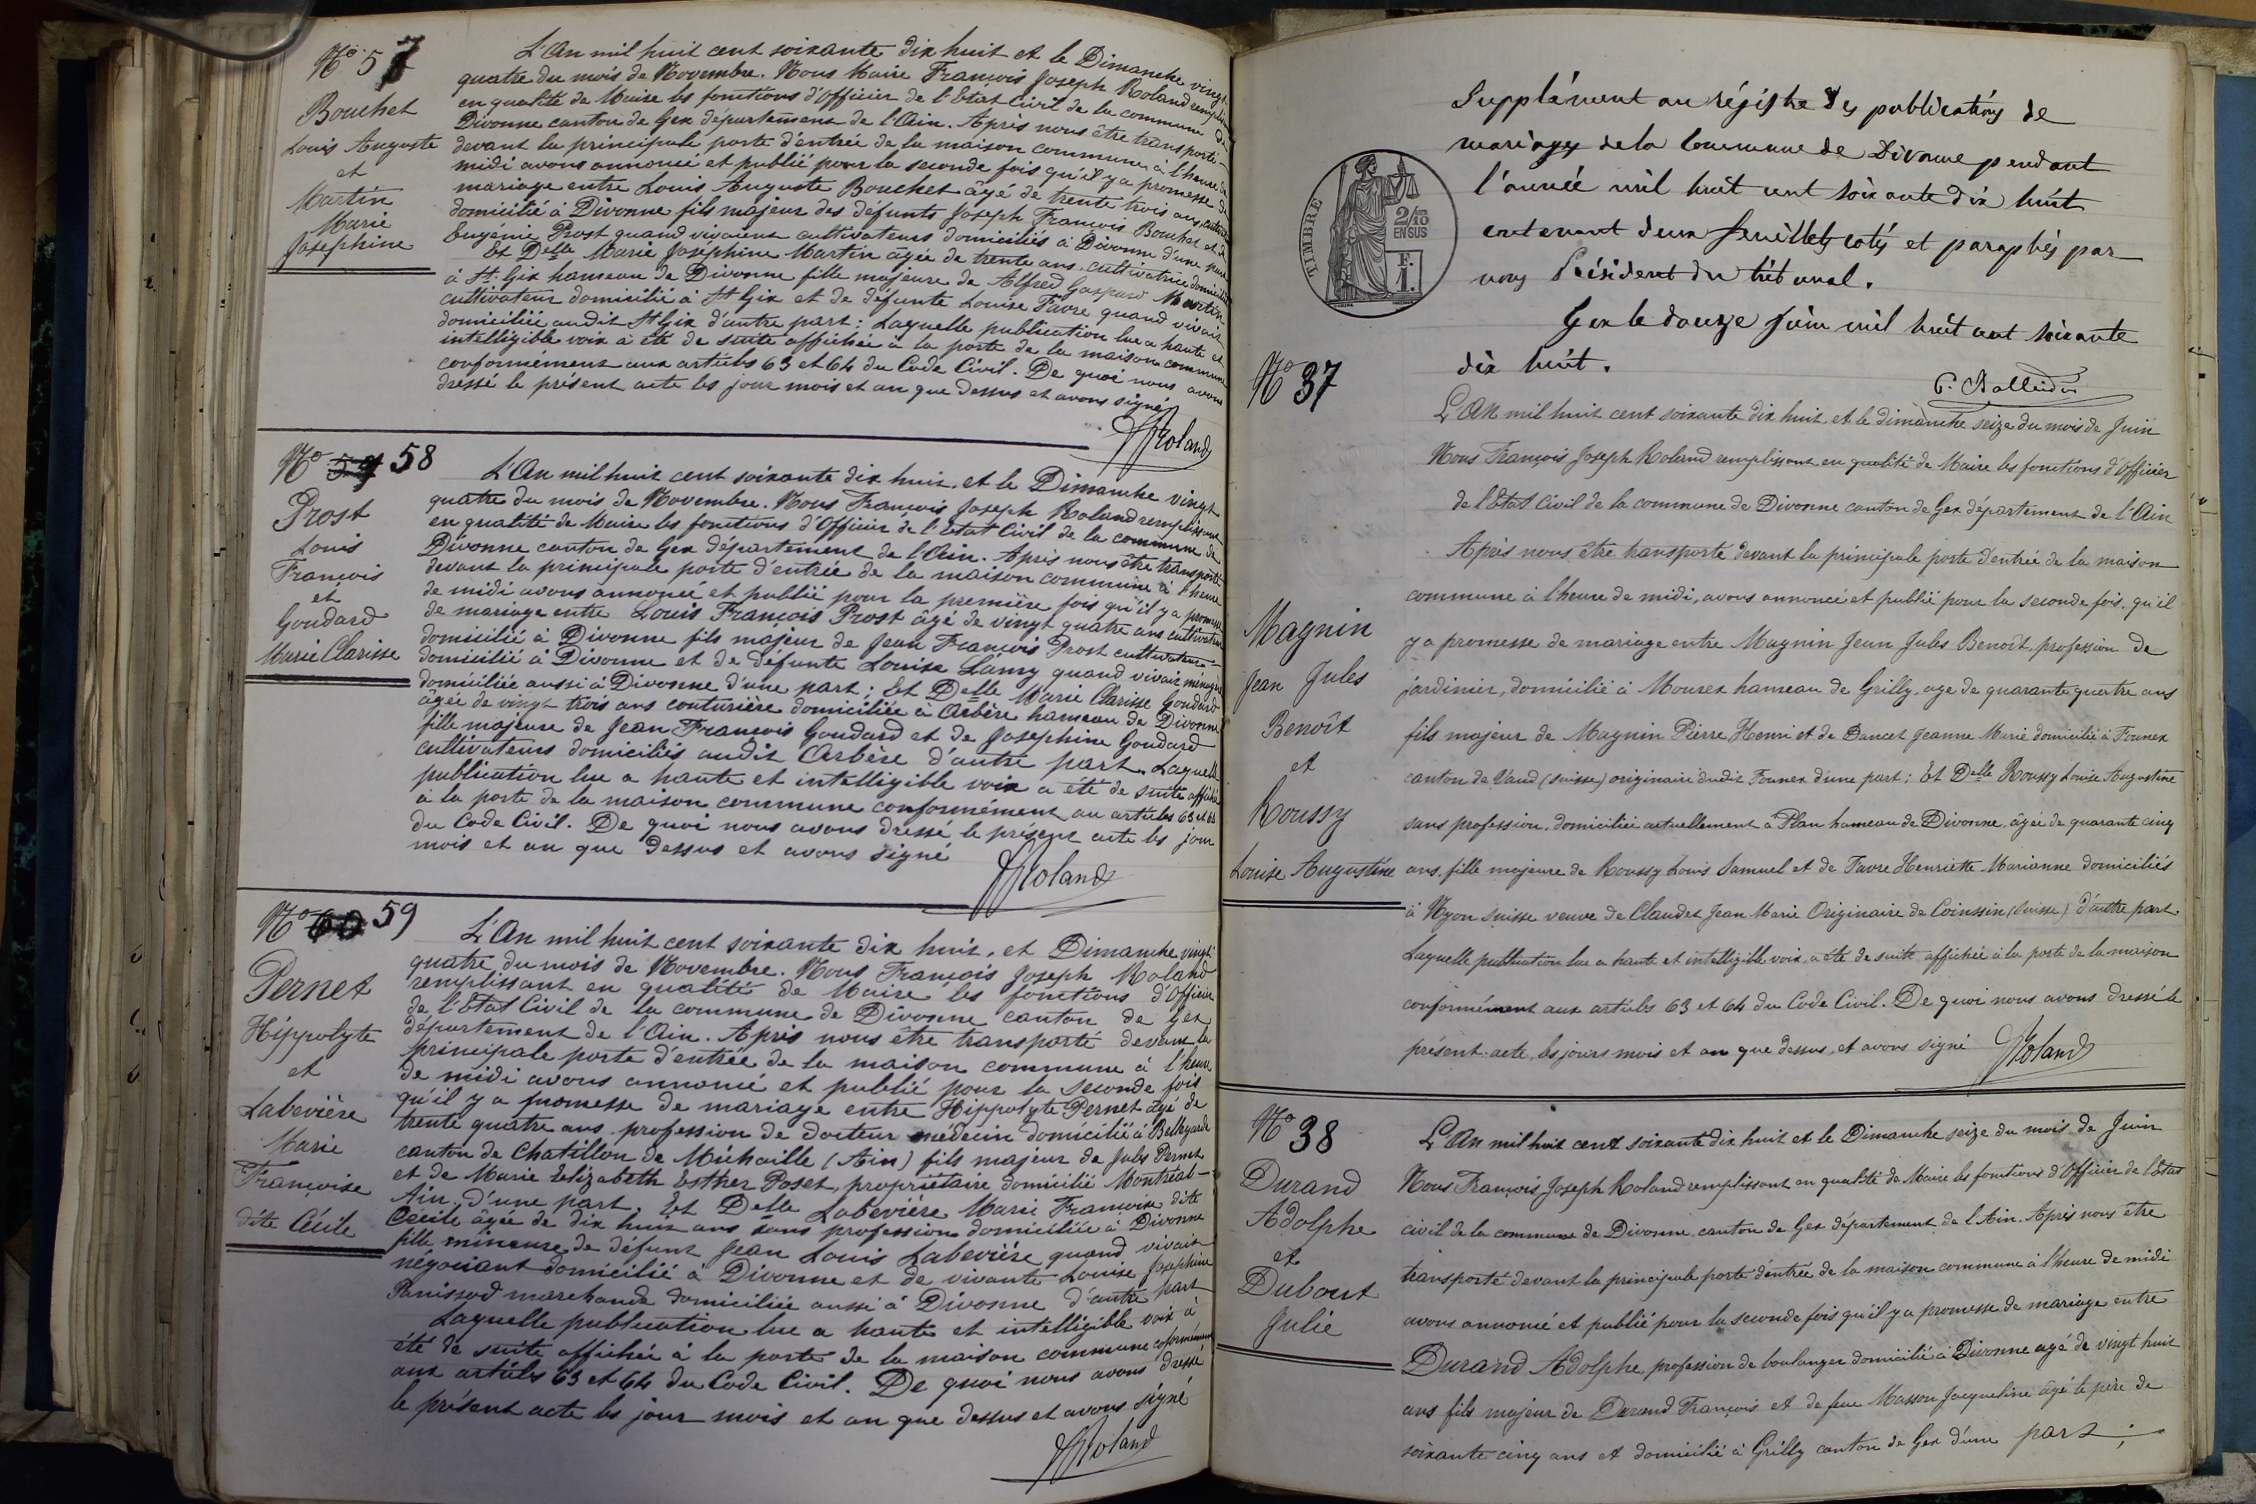 N° 57
Bouchet
Louis Auguste
et
Martin
Marie
Joséphine
L'An mil huit cent soixante dix huit et le Dimanche vingt
quatre du mois de Novembre. Nous Maire François Joseph Roland
en qualité de Maire les fonctions d'Officier de l'Etat Civil de la commune de
Divonne canton de Gex département de l'Ain. Après nous être transporté
devant la principale porte d'entrée de la maison commune à l'heure de
midi avons annoncé et publié pour la seconde fois qu'il y a promesse de
mariage entre Louis Auguste Bouchet âgé de trente trois ans
domicilié à Divonne fils majeur des défunts Joseph François Bouchet et de
Eugénie Prost quand vivaient cultivateurs domiciliés à Divonne d'une part
Et Delle Marie Joséphine Martin âgée de trente ans cultivatrice domiciliée
à St Gix hameau de Divonne fille majeure de Alfred Gaspard Martin
cultivateur domicilié à St Gix et de défunte Louise Favre quand vivait
domiciliée audit St Gix d'autre part : Laquelle publication lue a haute et
intelligible voix à été de suite affichée à la porte de la maison commune
conformément aux articles 63 et 64 du Code Civil. De quoi nous avons
dressé le présent acte les jour mois et an que dessus et avons signé
JRoland
N° 58
Prost
Louis
François
et
Goudard
Marie Clarisse
L'An mil huit cent soixante dix huit, et le Dimanche vingt
quatre du mois de Novembre. Nous François Joseph Roland remplissant
en qualité de Maire les fonctions d'Officier de l'Etat Civil de la commune de
Divonne canton de Gex département de l'Ain. Après nous être transporté
devant la principale porte d'entrée de la maison commune à l'heure
de midi avons annoncé et publié pour la première fois qu'il y a promesse
de mariage entre Louis François Prost âgé de vingt quatre ans cultivateur
domicilié à Divonne fils majeur de Jean François Prost cultivateur
domicilié à Divonne et de défunte Louise Lamy quand vivait ménagère
domiciliée aussi à Divonne d'une part ; Et Delle Marie Clarisse Goudard
âgée de vingt trois ans couturière domiciliée à Arbère hameau de Divonne
fille majeure de Jean François Goudard et de Joséphine Goudard
cultivateurs domiciliés audit Arbère d'autre part. Laquelle
publication lue a haute et intelligible voix a été de suite affichée
à la porte de la maison commune conformément au articles 63 et 64
du Code Civil. De quoi nous avons dressé le présent acte les jour
mois et an que dessus et avons signé
JRoland
N° 60 59
Pernet
Hippolyte
et
Labevière
Marie
Françoise
dite Cécile
L'An mil huit cent soixante dix huit, et Dimanche vingt
quatre du mois de Novembre. Nous François Joseph Roland
remplissant en qualité de Maire les fonctions d'Officier
de l'Etat Civil de la commune de Divonne canton de Gex
département de l'Ain. Après nous être transporté devant la
principale porte d'entrée de la maison commune à l'heure
de midi avons annoncé et publié pour la seconde fois
qu'il y a promesse de mariage entre Hippolyte Pernet âgé de
trente quatre ans profession de docteur médecin domicilié à Bellegarde
canton de Chatillon de Michaille (Ain) fils majeur de Jules Pernet
et de Marie Elizabeth Esther Poset, propriétaire domicilié Montréal-
Ain d'une part, Et Delle Labevière Marie Françoise dite
Cécile âgée de dix huit ans sans profession domiciliée à Divonne
fille mineure de défunt Jean Louis Labevière quand vivait
négociant domicilié à Divonne et de vivante Louise Joséphine
Panissod marchande domiciliée aussi à Divonne d'autre part
Laquelle publication lue a haute et intelligible voix à
été de suite affichée à la porte de la maison commune coformément
aux articles 63 et 64 du Code Civil. De quoi nous avons dressé
le présent acte les jour mois et an que dessus et avons signé
JRoland
Supplément au régistre des publications de
mariages de la Commune de Divonne pendant
l'année mil huit cent soixante dix huit
contenant deux feuillets cotés et paraphés par
nous Président du tribunal.
Gex le douze Juin mil huit cent soixante
dix huit.
TIMBRE
2/10
EN SUS
F.
1.
N° 37
Magnin
Jean Jules
Benoît
et
Roussy
Louise Augustine
L'An mil huit cent soixante dix huit et le dimanche seize du mois de Juin
Nous François Joseph Roland remplissant en qualité de Maire les fonctions d'Officier
de l'Etat Civil de la commune de Divonne canton de Gex département de l'Ain
Après nous être transporté devant la principale porte d'entrée de la maison
commune à l'heure de midi, avons annoncé et publié pour la seconde fois, qu'il
y a promesse de mariage entre Magnin Jean Jules Benoît, profession de
jardinier, domicilié à Mourex hameau de Grilly, age de quarante quatre ans
fils majeur de Magnin Pierre Henri et de Dancet Jeanne Marie domicilié à Founex
canton de Vaud (Suisse) originaire dudit Founex d'une part : Et Delle Roussy Louise Augustine
sans profession, domiciliée actuellement à Plan hameau de Divonne, âgée de quarante cinq
ans, fille majeure de Roussy Louis Samuel et de Favre Henriette Marianne domiciliés
à Nyon Suisse veuve de Claudet Jean Marie Originaire de Coinssin (Suisse) d'autre part.
Laquelle publication lue a haute et intelligible voix, a été de suite affichée à la porte de la maison
conformément aux articles 63 et 64 du Code Civil. De quoi nous avons dressé le
présent acte, les jours mois et an que dessus, et avons signé JRoland
N° 38
Durand
Adolphe
et
Dubout
Julie
L'An mil huit cent soixante dix huit et le Dimanche seize du mois de Juin
Nous François Joseph Roland remplissant en qualité de Maire les fonctions d'Officier de l'Etat
civil de la commune de Divonne, canton de Gex département de l'Ain. Après nous être
transporté devant la principale porte d'entrée de la maison commune à l'heure de midi
avons annoncé et publié pour la seconde fois qu'il y a promesse de mariage entre
Durand Adolphe, profession de boulanger domicilié à Divonne agé de vingt huit
ans fils majeur de Durand François et de feue Masson Jacqueline âgé le père de
soixante cinq ans et domicilié à Grilly canton de Gex d'une part ;